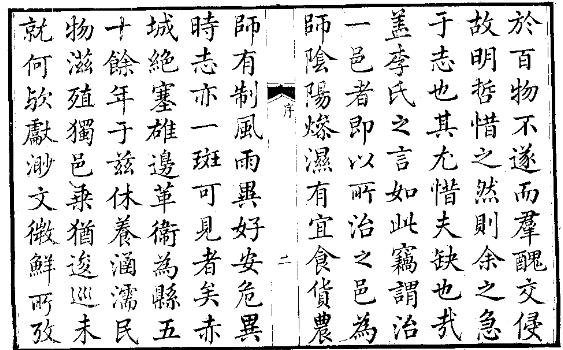 於百物不遂而羣醜交侵
故明哲惜之然則余之急
于志也其尤惜夫缺也㢤
盖李氏之言如此竊謂治
一邑者即以所治之邑為
師陰陽燥濕有宜食貨農
序
二
師有制風雨異好安危異
時志亦一斑可見者矣赤
城絶塞雄邊革衞為縣五
十餘年于兹休養涵濡民
物滋殖獨邑乗猶逡巡未
就何欤獻渺文微鮮所攷